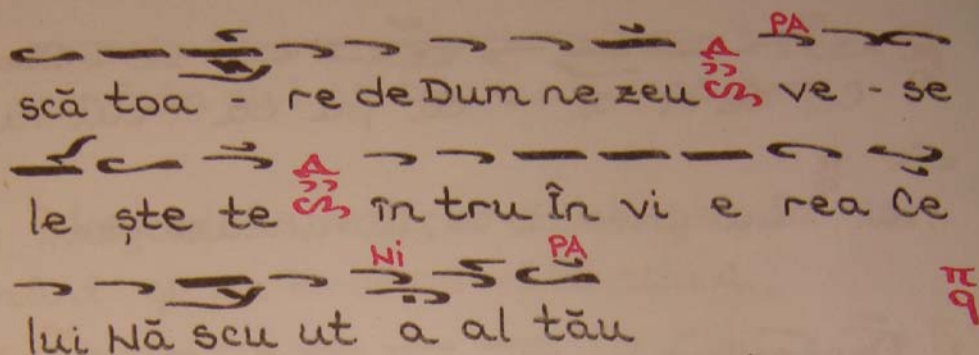 PA
scă toa - re de Dum ne zeu ve - se
le ște te în tru În vi e rea Ce
Ni PA
lui Nă scu ut a al tău
π
q